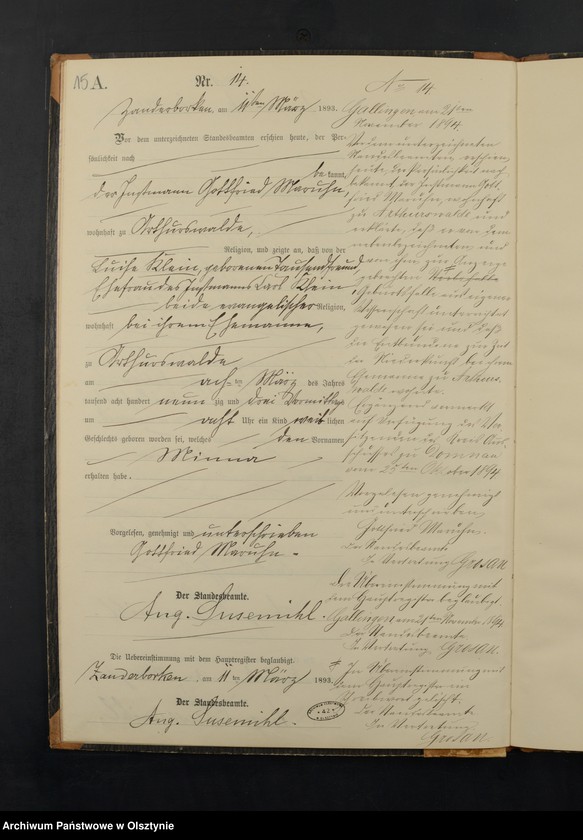 15 A.
Nr. 14.
Zanderborken, am 11ten März 1893.
Vor dem unterzeichneten Standesbeamten erschien heute, der Per-
sönlichkeit nach
be kannt,
der Instmann Gottfried Maruhn,
wohnhaft zu Arthurswalde,
Religion, und zeigte an, daß von der
Luise Klein, geborenen Tausendfreund,
Ehefrau des Instmanns Carl Klein
beide evangelischer Religion,
wohnhaft bei ihrem Ehemanne,
zu Arthurswalde
am acht ten März des Jahres
tausend acht hundert neun zig und drei Vormittags
um acht Uhr ein Kind weib lichen
Geschlechts geboren worden sei, welches den Vornamen
Minna
erhalten habe.
Vorgelesen, genehmigt und unterschrieben
Gottfried Maruhn.
Der Standesbeamte.
Aug. Susemihl.
Die Uebereinstimmung mit dem Hauptregister beglaubigt.
Zanderborken, am 11 ten März 1893.
Der Standesbeamte.
Aug. Susemihl.
No 14.
Gallingen am 21sten
November 1894.
Vor dem unterzeichneten
Standesbeamten erschien
heute, der Persönlichkeit nach
bekannt, der Instmann Gott-
fried Maruhn, wohnhaft
zu Arthurswalde und
erklärte, daß er von dem
nebenbezeichneten und
von ihm zur Anzeige
gebrachten
Geburtsfalle aus eigener
Wissenschaft unterrichtet
gewesen sei und daß
die zur Zeit
der Niederkunft bei ihrem
Ehemanne zu Arthurs-
walde wohnte.
vermerkt
auf Verfügung des Vor-
sitzenden des Kreis Aus-
schusses zu Domnau
vom 25ten Oktober 1894
Vorgelesen, genehmigt
und unterschrieben
Gottfried Maruhn.
Der Standesbeamte
In Vertretung
Die Übereinstimmung mit
dem Hauptregister beglaubigt.
Gallingen am 21ten November 1894
Der Standesbeamte
In Vertretung
Die Übereinstimmung mit
dem Hauptregister
Der Standesbeamte
In Vertretung
Archiwum Państwowe w Olsztynie